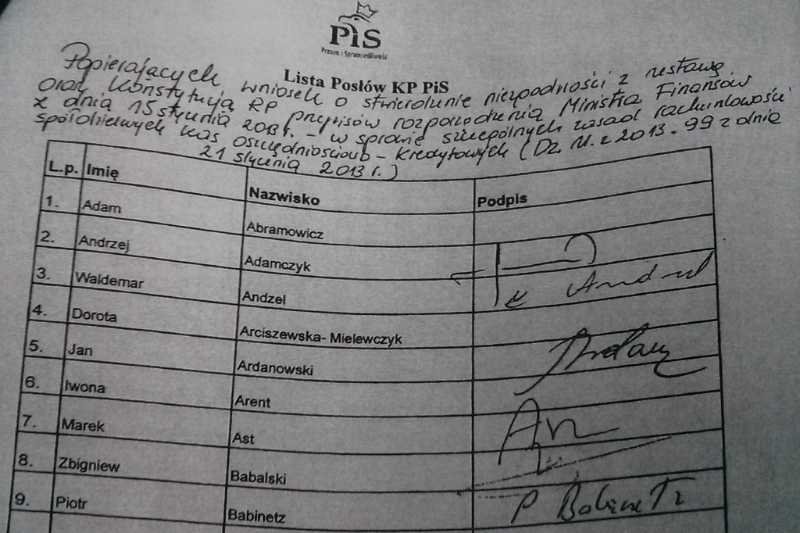 PiS
Prawo i Sprawiedliwość
Lista Posłów KP PiS
Popierających wniosek o stwierdzenie niezgodności z ustawą
oraz Konstytucją RP przepisów rozporządzenia Ministra Finansów
z dnia 15 stycznia 2013 r. w sprawie szczególnych zasad rachunkowości
spółdzielczych kas oszczędnościowo - kredytowych (Dz. U. z 2013. 99 z dnia
21 stycznia 2013 r.)
L.p. Imię Nazwisko Podpis
1. Adam Abramowicz
2. Andrzej Adamczyk
3. Waldemar Andzel Andzel
4. Dorota Arciszewska- Mielewczyk
5. Jan Ardanowski
6. Iwona Arent
7. Marek Ast
8. Zbigniew Babalski
9. Piotr Babinetz P Babinetz